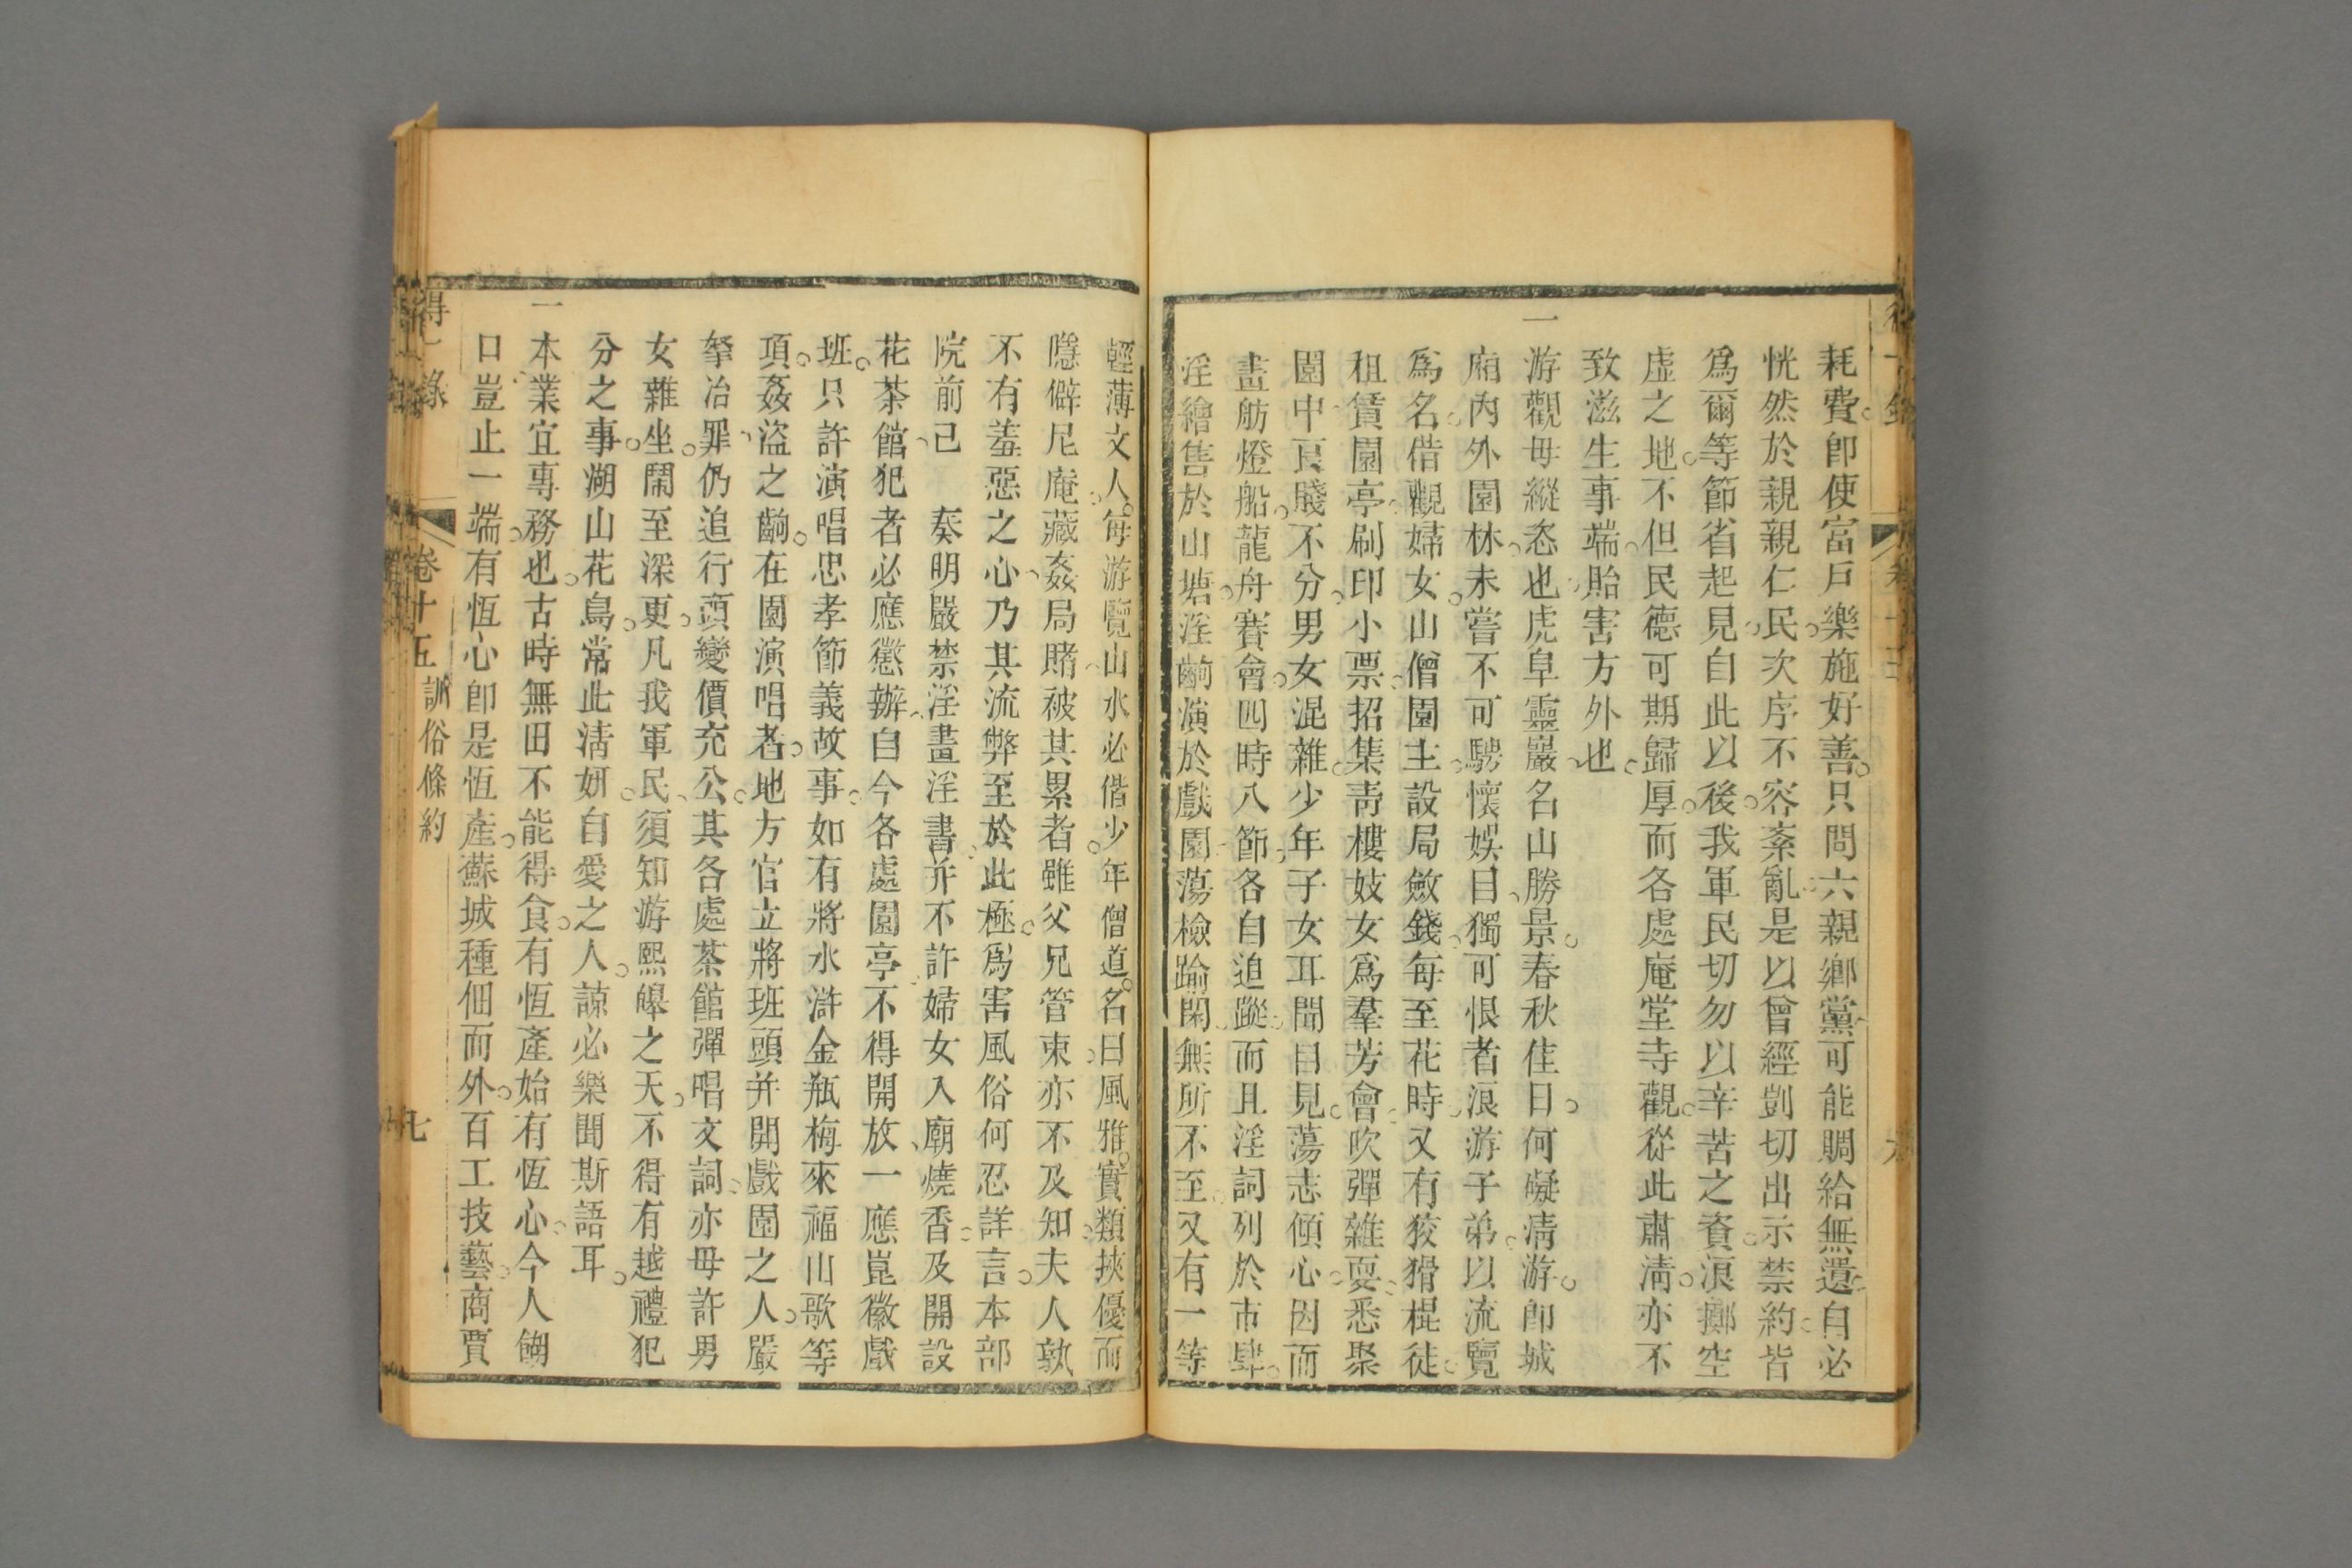 耗費。卽使富戶樂施好善。只問六親鄉黨、可能賙給無遺、自必
恍然於親親仁民。次序不容紊亂。是以曾經剴切出示禁約。皆
爲爾等節省起見、自此以後、我軍民切勿以辛苦之資。浪擲空
虛之地。不但民德可期歸厚。而各處庵堂寺觀。從此肅淸。亦不
致滋生事端、貽害方外也。
一游觀毋縱恣也、虎阜靈巖、名山勝景。春秋佳日。何礙淸游。卽城
廂內外園林、未嘗不可騁懷娛目、獨可恨者、浪游子弟。以流覽
爲名。借觀婦女。山僧園主、設局斂錢。每至花時、又有狡猾棍徒。
租賃園亭、刷印小票、招集靑樓妓女、爲羣芳會、吹彈雜耍、悉聚
園中、良賤不分。男女混雜。少年子女、耳聞目見。蕩志傾心。因而
畫舫燈船。龍舟賽會。四時八節。各自追蹤、而且淫詞列於市肆。
淫繪售於山塘。淫齣演於戲園、蕩檢踰閑、無所不至。又有一等
輕薄文人。每游覽山水、必偕少年僧道。名曰風雅。實類挾優、而
隱僻尼庵。藏姦局賭、被其累者。雖父兄管束、亦不及知、夫人孰
不有羞惡之心、乃其流弊至於此極。爲害風俗、何忍詳言。本部
院前已　奏明嚴禁淫畫淫書、并不許婦女入廟燒香。及開設
花茶館、犯者必應懲辦、自今各處園亭、不得開放、一應崑徽戲
班。只許演唱忠孝節義故事。如有將水滸金瓶梅來福山歌等
項。姦盜之齣。在園演唱者。地方官立將班頭并開戲園之人。嚴
拏治罪、仍追行頭變價充公。其各處茶館彈唱文詞。亦毋許男
女雜坐。鬧至深更。凡我軍民、須知游熙皞之天。不得有越禮犯
分之事。湖山花鳥。常此淸妍。自愛之人。諒必樂聞斯語耳。
一本業宜專務也。古時無田不能得食。有恆產始有恆心、今人餬
口、豈止一端。有恆心卽是恆產。蘇城種佃而外。百工技藝。商賈
得一錄　卷十五訓俗條約　七